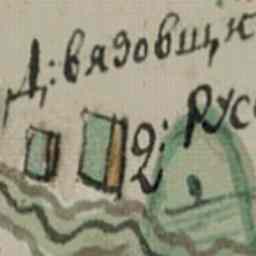 Д: вядовщи
2: Рус